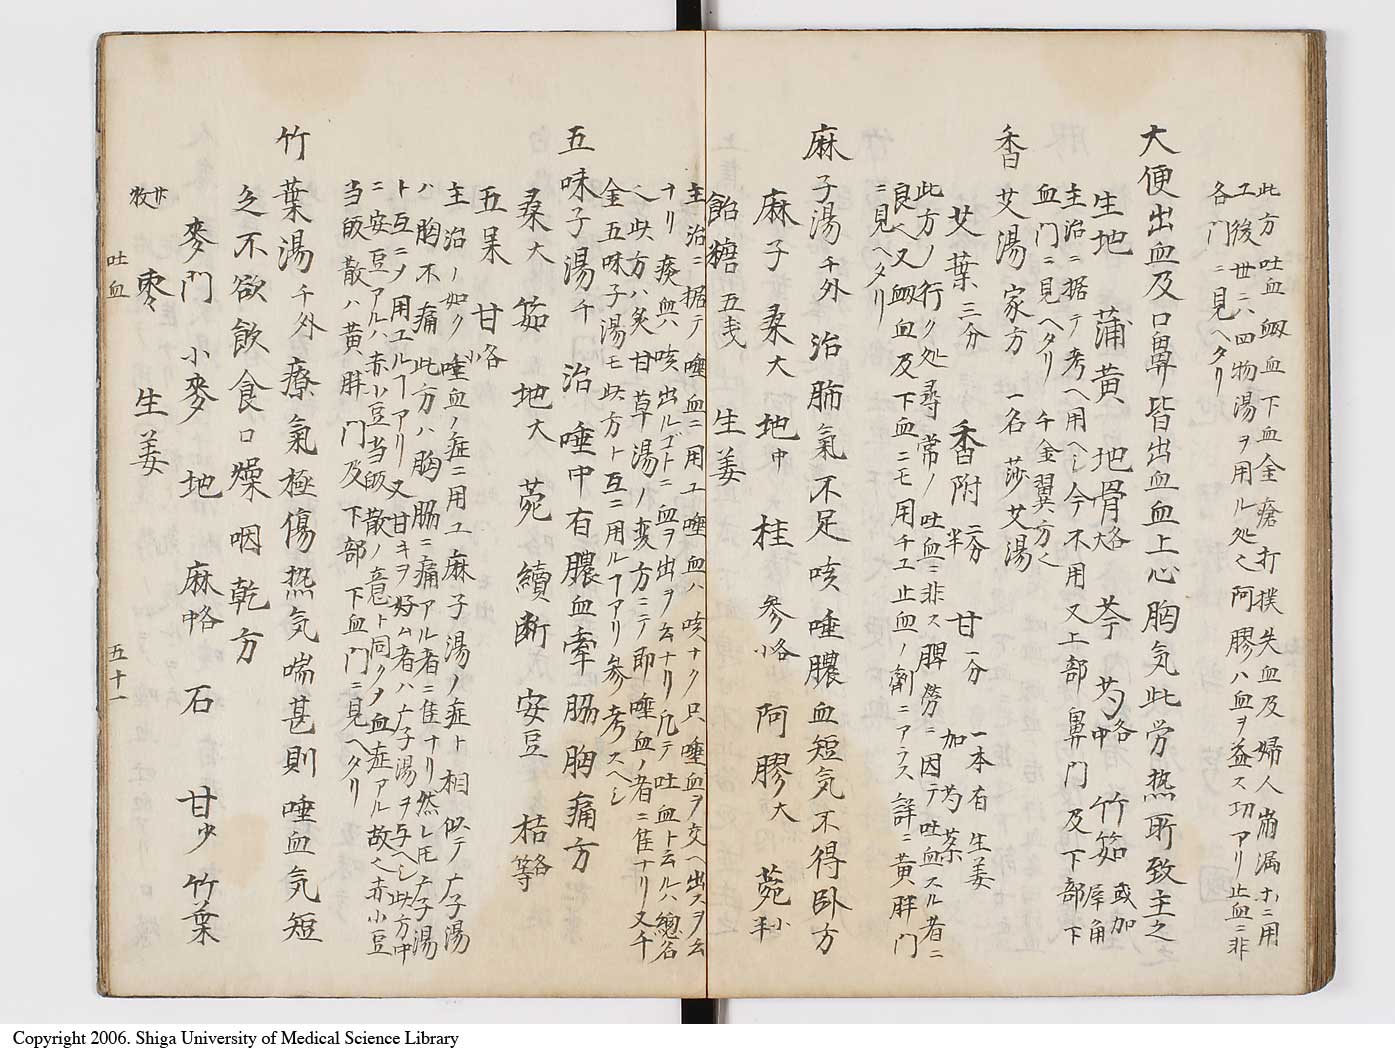 此方吐血衂血下血金瘡打撲失血及婦人崩漏ホニ用
ユ後世ニハ四物湯ヲ用ル処〱阿膠ハ血ヲ益ス功アリ止血ニ非
各門ニ見ヘタリ
大便出血及口鼻皆出血血上心胸気此労热所致主之
生地 蒲黄 地骨大各 芩 芍中各 竹筎 或加犀角
主治ニ据テ考ヘ用ヘシ今不用又上部鼻門及下部下
血門ニ見ヘタリ 千金翼方〱
香艾湯 家方 一名莎艾湯
艾葉三分 香附二分半 甘一分 一本有生姜加芍茶
此方ノ行ク処尋常ノ吐血ニ非ス脾労ニ因テ吐血スル者ニ
良〱又衂血及下血ニモ用テユ止血ノ劑ニアラス詳ニ黄胖門
ニ見ヘタリ
麻子湯 千外 治肺氣不足咳唾膿血短気不得卧方
麻子 桑大 地中 桂 參小各 阿膠大 菀小半
飴糖五戋 生姜
主治ニ据テ唾血ニ用ユ唾血ハ咳ナク只唾血ヲ交ヘ出スヲ云
ナリ痰血ハ咳出ルゴトニ血ヲ出ヲ云ナリ凢テ吐血ト云ルハ總名
〱此方ハ炙甘草湯ノ変方ニテ即唾血ノ者ニ隹ナリ又千
金五味子湯モ此方ト互ニ用ルヿアリ參考スヘシ
五味子湯 千 治唾中有膿血牽胸痛方
桑大 筎 地大 菀 續断 安豆 桔各等
五味 甘小各
主治ノ如ク唾血ノ症ニ用ユ麻子湯ノ症ト相似テ广子湯
ハ胸不痛此方ハ胸腸ニ痛アル者ニ隹ナリ然レ𪜈广子湯
ト互ニノ用ユルヿアリ又甘キヲ好ム者ハ广子湯ヲ与ヘシ此方中
ニ安豆アルハ赤小豆当皈散ノ意ト同クメ血症アル故〱赤小豆
当皈散ハ黄胖門及下部下血門ニ見ヘタリ
竹葉湯 千外 療氣極傷热气喘甚則唾血气短
乏不欲飲食口燥咽乾方
麥門 小麥 地 麻中各 石 甘少 竹葉
枣 生姜
吐血
五十一